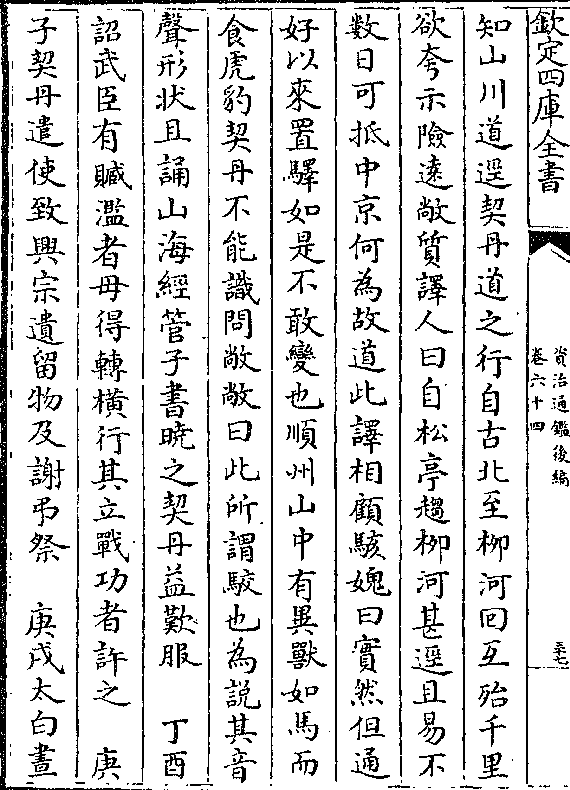 欽定四庫全書
資治通鑑後編
卷六十四
至七
知山川道逕契丹道之行自古北至柳河回互殆千里
欲夸示險遠敞質譯人曰自松亭趨柳河甚逕且易不
數日可抵中京何為故道此譯相顧駭媿曰實然但通
好以來置驛如是不敢變也順州山中有異獸如馬而
食虎豹契丹不能識問敞敞曰此所謂駮也為説其音
聲形状且誦山海經管子書曉之契丹益歎服　丁酉
詔武臣有贓濫者毋得轉橫行其立戰功者許之　庚
子契丹遣使致興宗遺留物及謝弔祭　庚戌太白晝